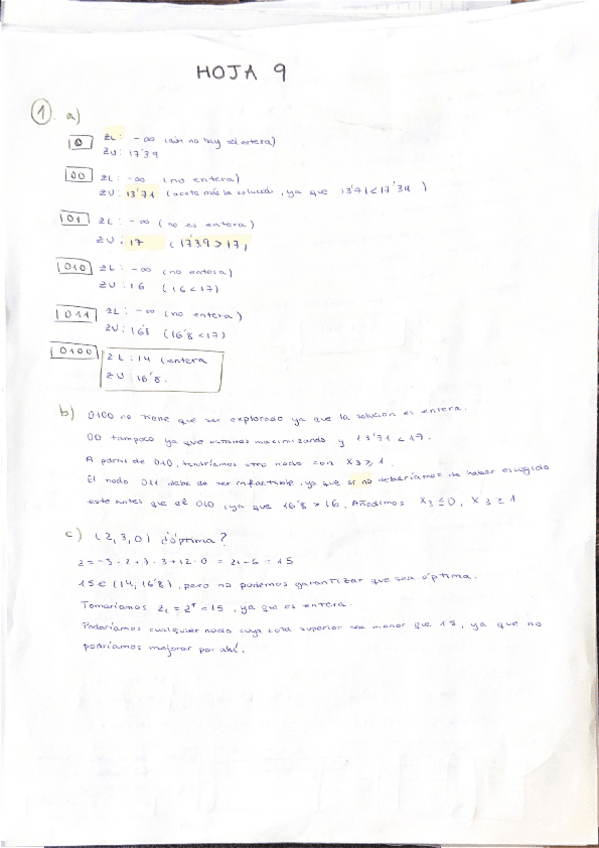 HOJA 9
1. a)
0 ZL: -∞ (aún no hay sol entera)
ZU: 17'39
00 ZL: -∞ (no entera)
ZU: 13'71 (acota más la solución, ya que 13'71<17'39)
01 ZL: -∞ (no es entera)
ZU: 17 (17'39>17)
010 ZL: -∞ (no entera)
ZU: 16 (16<17)
011 ZL: -∞ (no entera)
ZU: 16'8 (16'8<17)
0100 ZL: 14 (entera
ZU: 16'8.
b) 0100 no tiene que ser explorado ya que la solución es entera.
00 tampoco ya que estamos maximizando y 13'71 < 17.
A partir de 010, tendríamos otro nodo con X3 ≥ 1.
El nodo 011 debe de ser infactible, ya que si no deberíamos de haber escogido
este antes que el 010, ya que 16'8 > 16. Añadimos X3 ≤ 0, X3 ≥ 1
c) (2,3,0) ¿óptima?
z = -3·2+7·3+12·0 = 21-6 = 15
15 ∈ (14, 16'8), pero no podemos garantizar que sea óptima.
Tomaríamos ZL = Z* = 15, ya que es entera.
Podaríamos cualquier nodo cuya cota superior sea menor que 15, ya que no
podríamos mejorar por ahí.